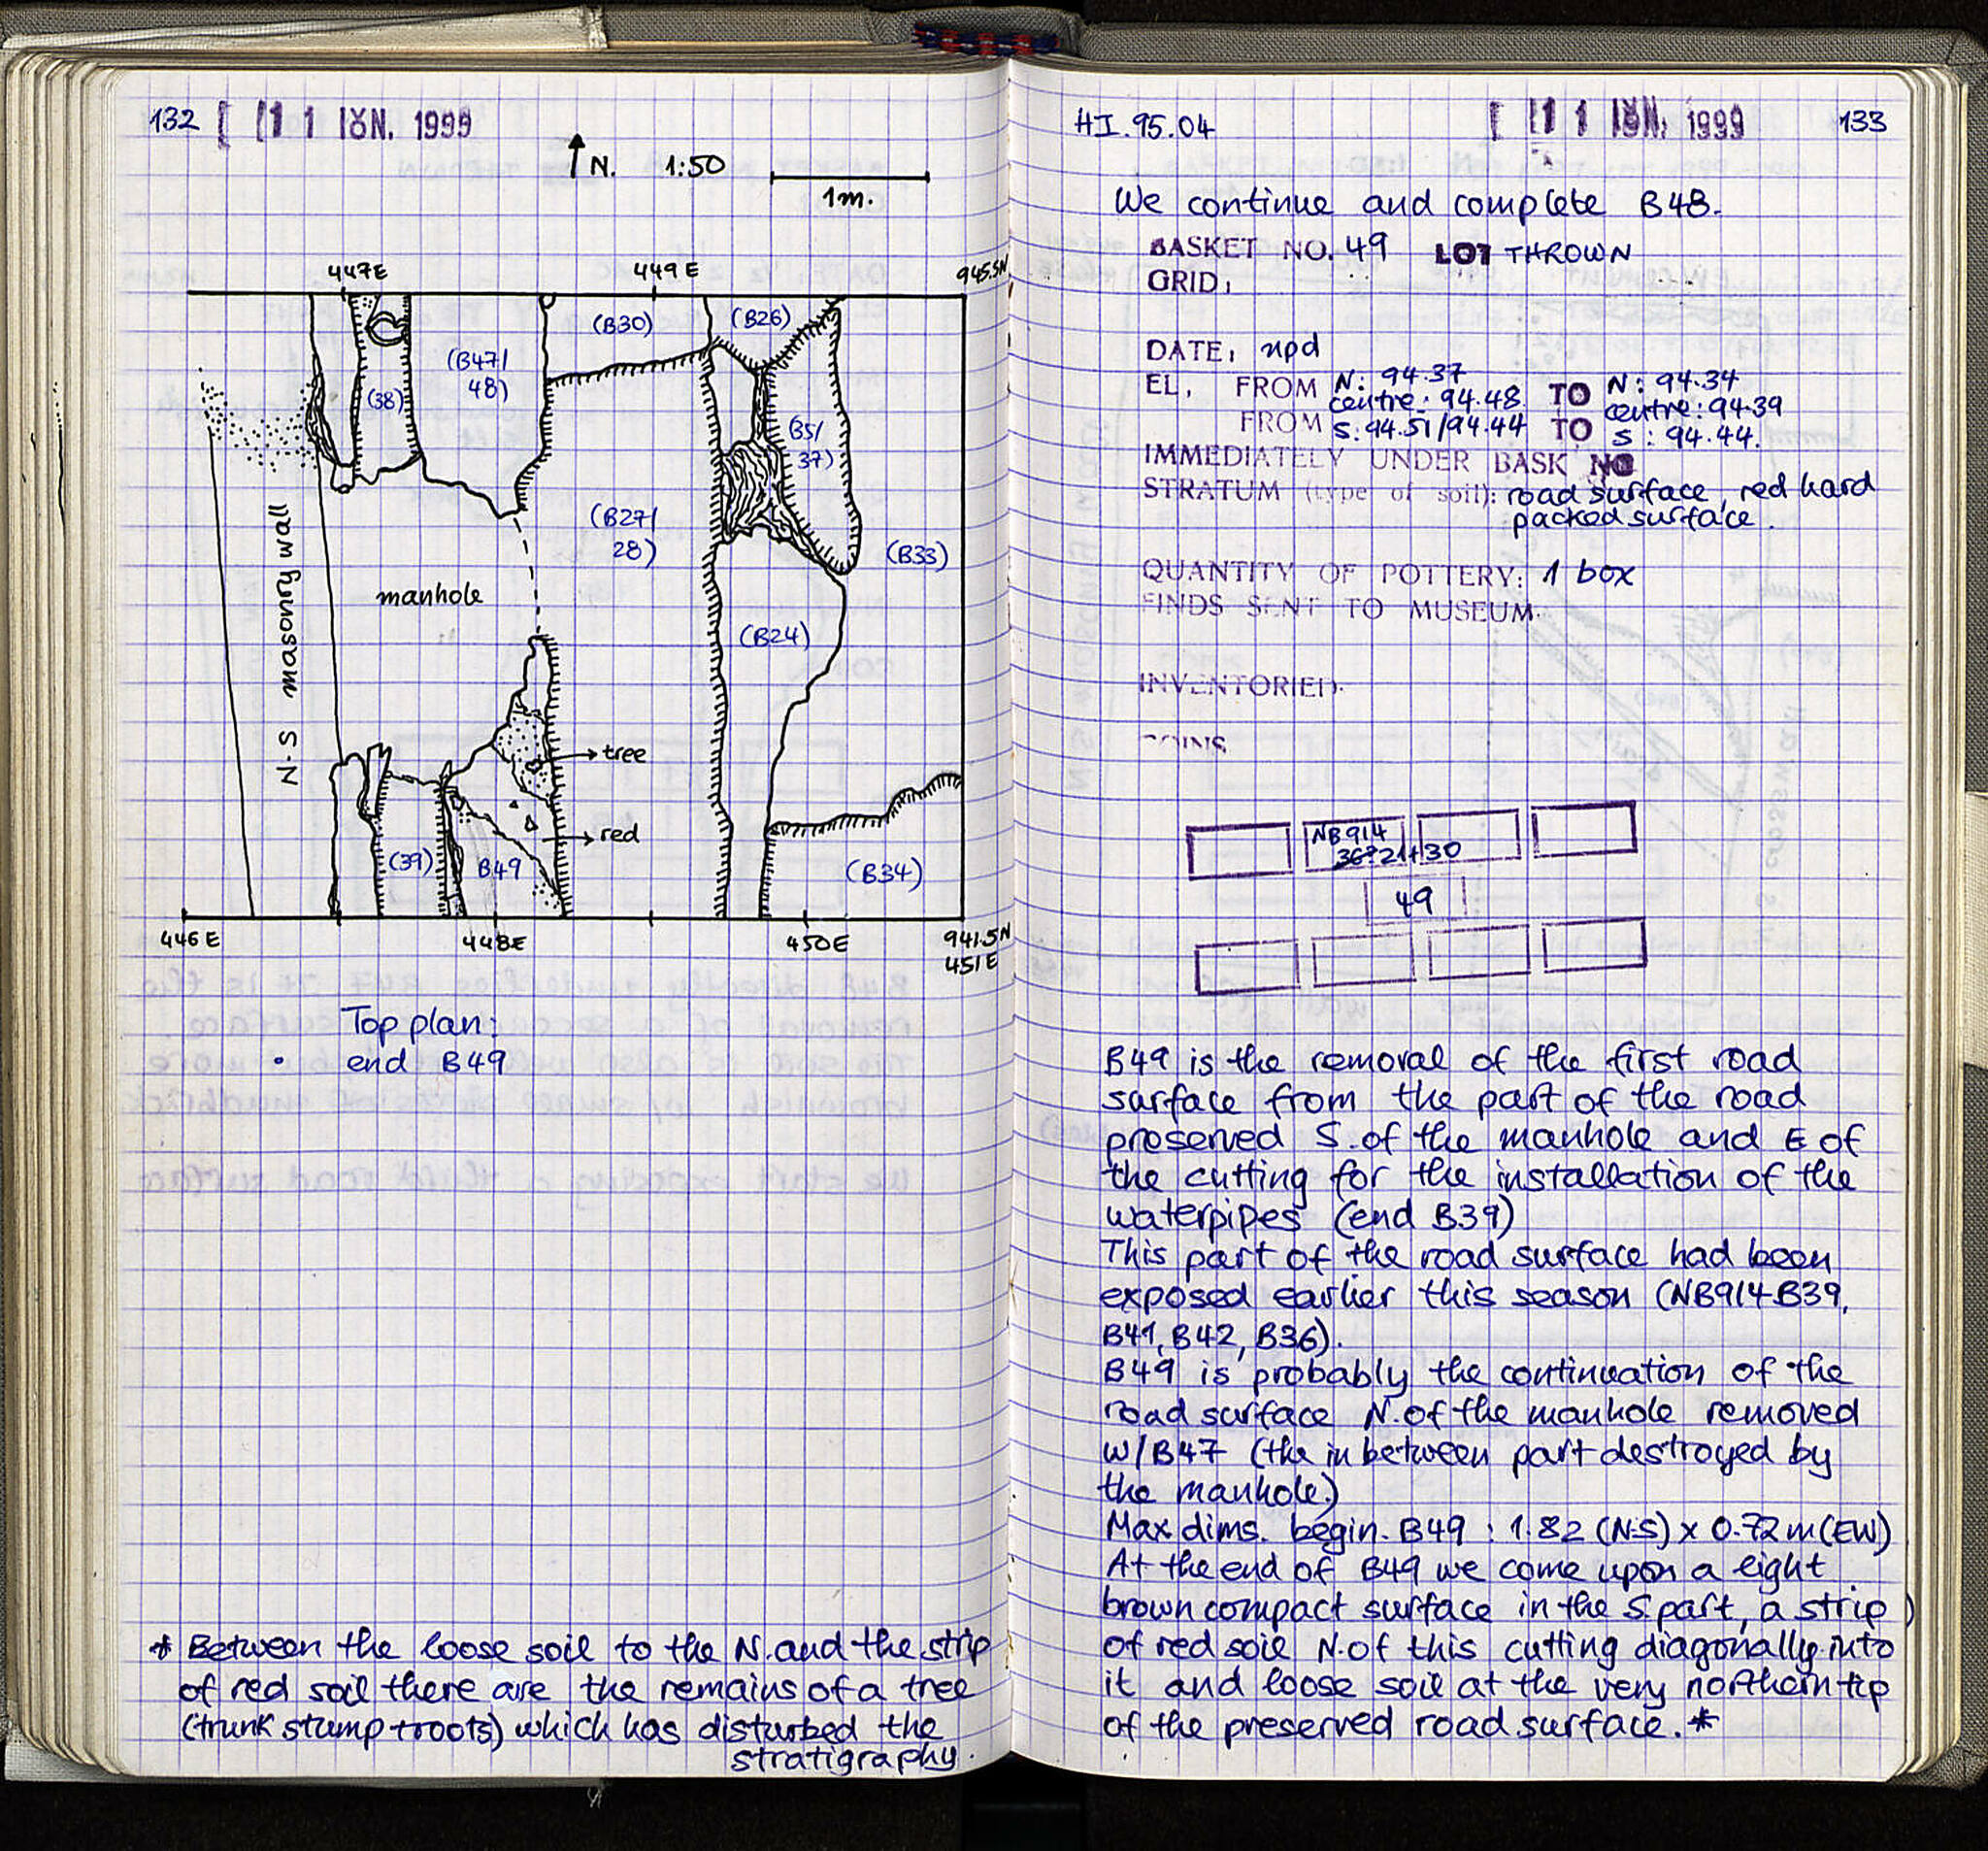 132 11 IOYN. 1999
N. 1:50
1m.
447E 449E 945.5N
(B30) (B26)
(B47/
48)
(38)
(B5/
37)
(B27/
28)
(B33)
N-S masonry wall
manhole
(B24)
tree
red
(39) B49 (B34)
446E 448E 450E 941.5N
451E
Top plan:
• end B49
* Between the loose soil to the N. and the strip
of red soil there are the remains of a tree
(trunk stump + roots) which has disturbed the
stratigraphy.
HI.95.04 11 IOYN. 1999 133
We continue and complete B48.
BASKET NO. 49 LOT THROWN
GRID:
DATE: npd
EL. FROM N: 94.37 TO N: 94.34
centre: 94.48 centre: 94.39
FROM S: 94.51/94.44 TO S: 94.44.
IMMEDIATELY UNDER BASK NO
STRATUM (type of soil): road surface, red hard
packed surface.
QUANTITY OF POTTERY: 1 box
FINDS SENT TO MUSEUM.
INVENTORIED.
COINS
NB914
36?21+30
49
B49 is the removal of the first road
surface from the part of the road
preserved S. of the manhole and E of
the cutting for the installation of the
waterpipes (end B39)
This part of the road surface had been
exposed earlier this season (NB914 B39,
B41, B42, B36).
B49 is probably the continuation of the
road surface N. of the manhole removed
w/B47 (the in between part destroyed by
the manhole)
Max dims. begin. B49 : 1.82 (N-S) x 0.72 m (EW)
At the end of B49 we come upon a light
brown compact surface in the S. part, a strip
of red soil N. of this cutting diagonally into
it and loose soil at the very northern tip
of the preserved road surface. *